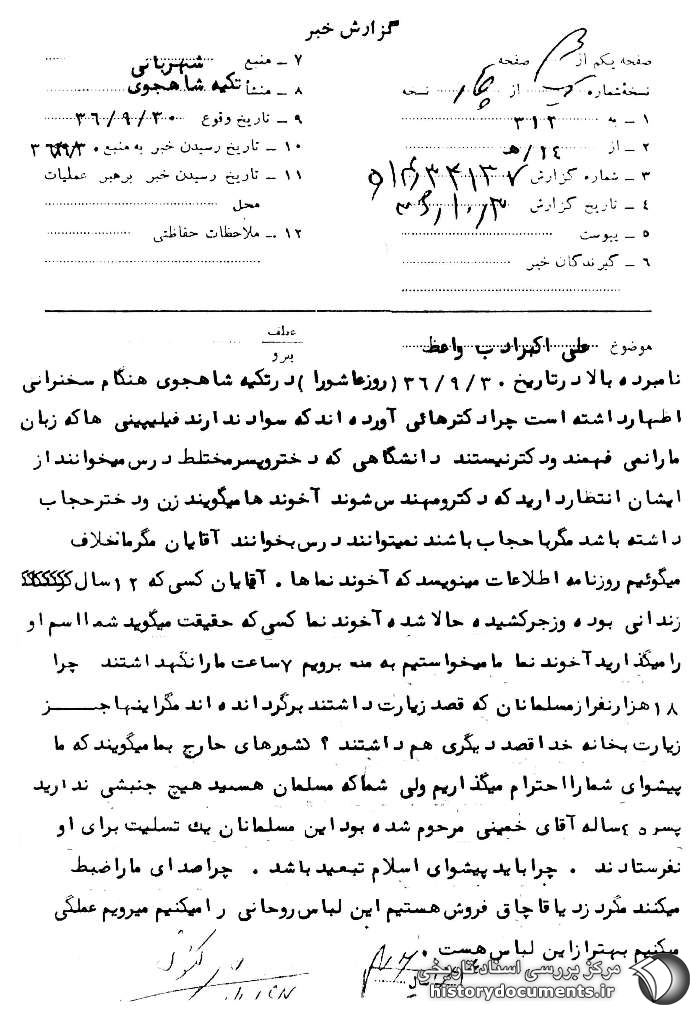 گزارش خبر
صفحه یکم از صفحه
نسخهٔ شماره از نسخه
۱ ـ به ۳۱۲
۲ ـ از ۱۴/ هـ
۳ ـ شماره گزارش
۴ ـ تاریخ گزارش
۵ ـ پیوست
۶ ـ گیرندگان خبر
۷ ـ منبع شهربانی
۸ ـ منشأ تکیه شاهجوی
۹ ـ تاریخ وقوع ۳۶/۹/۳۰
۱۰ ـ تاریخ رسیدن خبر به منبع
۱۱ ـ تاریخ رسیدن خبر برهبر عملیات
محل
۱۲ ـ ملاحظات حفاظتی
موضوع علی اکبر ادب واعظ
عطف
پیرو
نامبرده بالا در تاریخ ۳۶/۹/۳۰ (روز عاشورا) در تکیه شاهجوی هنگام سخنرانی
اظهار داشته است چرا دکترهائی آورده اند که سواد ندارند فیلیپینی ها که زبان
ما را نمی فهمند و دکتر نیستند دانشگاهی که دختر و پسر مختلط درس میخوانند از
ایشان انتظار دارید که دکتر و مهندس شوند آخوند ها میگویند زن و دختر حجاب
داشته باشد مگر با حجاب باشند نمیتوانند درس بخوانند آقایان مگر ما خلاف
میگوئیم روزنامه اطلاعات مینویسد که آخوند نما ها . آقایان کسی که ۱۲ سال
زندانی بوده و زجر کشیده حالا شده آخوند نما کسی که حقیقت میگوید شما اسم او
را میگذارید آخوند نما ما میخواستیم به مته برویم ۷ ساعت ما را نگهداشتند چرا
۱۸ هزار نفر از مسلمانان که قصد زیارت داشتند برگردانده اند مگر اینها جز
زیارت بخانه خدا قصد دیگری هم داشتند ؟ کشورهای خارج بما میگویند که ما
پیشوای شما را احترام میگذاریم ولی شما که مسلمان هستید هیچ جنبشی ندارید
پسر ۴۵ ساله آقای خمینی مرحوم شده بود این مسلمانان یک تسلیت برای او
نفرستادند . چرا باید پیشوای اسلام تبعید باشد . چرا صدای ما را ضبط
میکنند مگر دزد یا قاچاق فروش هستیم این لباس روحانی را میکنیم میرویم عملگی
میکنیم بهتر از این لباس هست .
مرکز بررسی اسناد تاریخی
historydocuments.ir